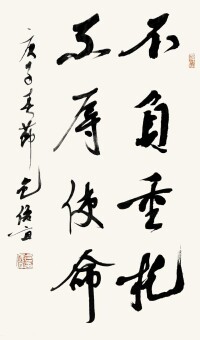 不负重托
不辱使命
庚子春节